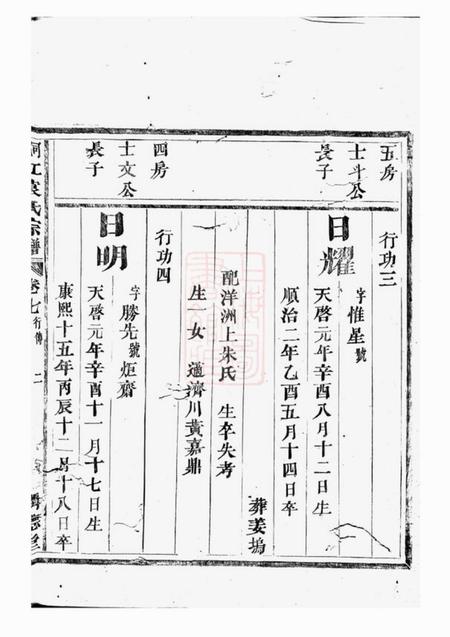 五房
士斗公
長子
行功三
日耀
字惟星號
天啓元年辛酉八月十二日生
順治二年乙酉五月十四日卒
葬姜塢
配洋洲上朱氏 生卒失考
生一女 適濟川黃嘉鼎
四房
士文公
長子
行功四
日明
字勝先號炬齋
天啓元年辛酉十一月十七日生
康熙十五年丙辰十二月十八日卒
江袁氏宗譜
卷七行傳
二